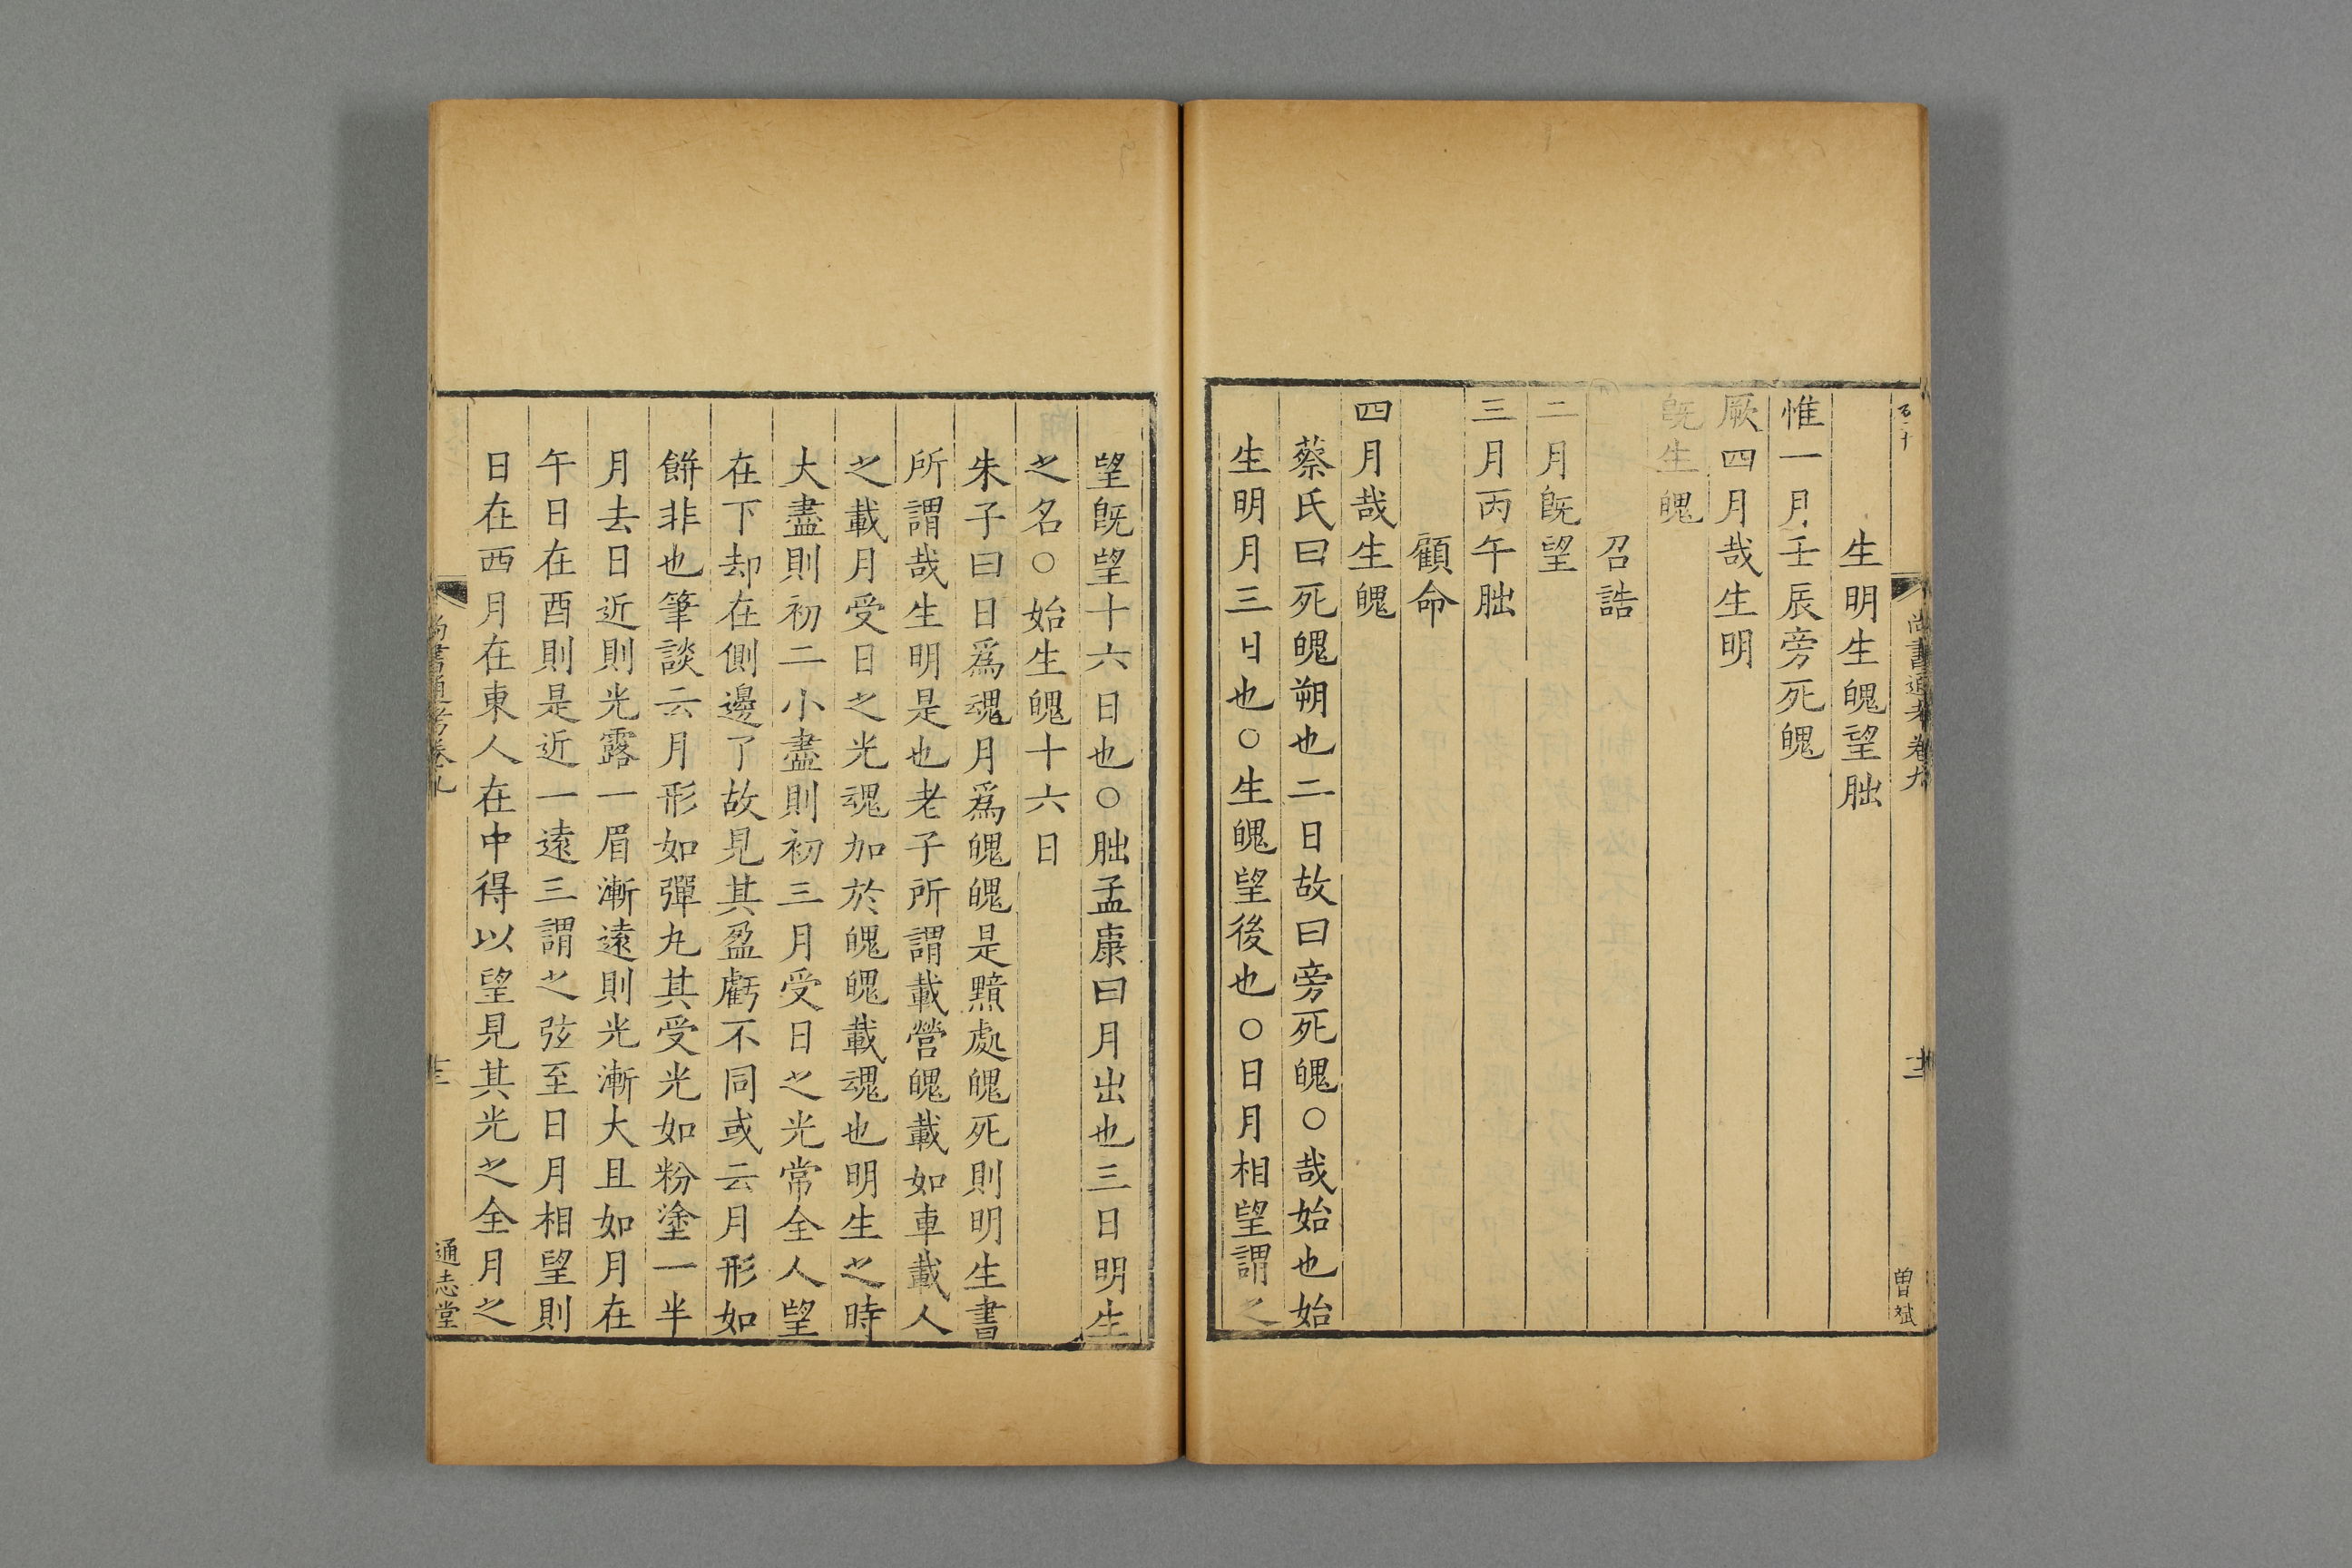 尚書通考卷九
十二
曽斌
生明生魄望朏
惟一月壬辰旁死魄
厥四月哉生明
旣生魄
召誥
二月旣望
三月丙午朏
顧命
四月哉生魄
蔡氏曰死魄朔也二日故曰旁死魄○哉始也始
生明月三日也○生魄望後也○日月相望謂之
望旣望十六日也○朏孟康曰月出也三日明生
之名○始生魄十六日
朱子曰日爲魂月爲魄魄是黯處魄死則明生書
所謂哉生明是也老子所謂載營魄載如車載人
之載月受日之光魂加於魄魄載魂也明生之時
大盡則初二小盡則初三月受日之光常全人望
在下却在側邊了故見其盈虧不同或云月形如
餅非也筆談云月形如彈丸其受光如粉塗一半
月去日近則光露一眉漸遠則光漸大且如月在
午日在酉則是近一遠三謂之弦至日月相望則
日在西月在東人在中得以望見其光之全月之
尚書通考卷九
十三
通志堂